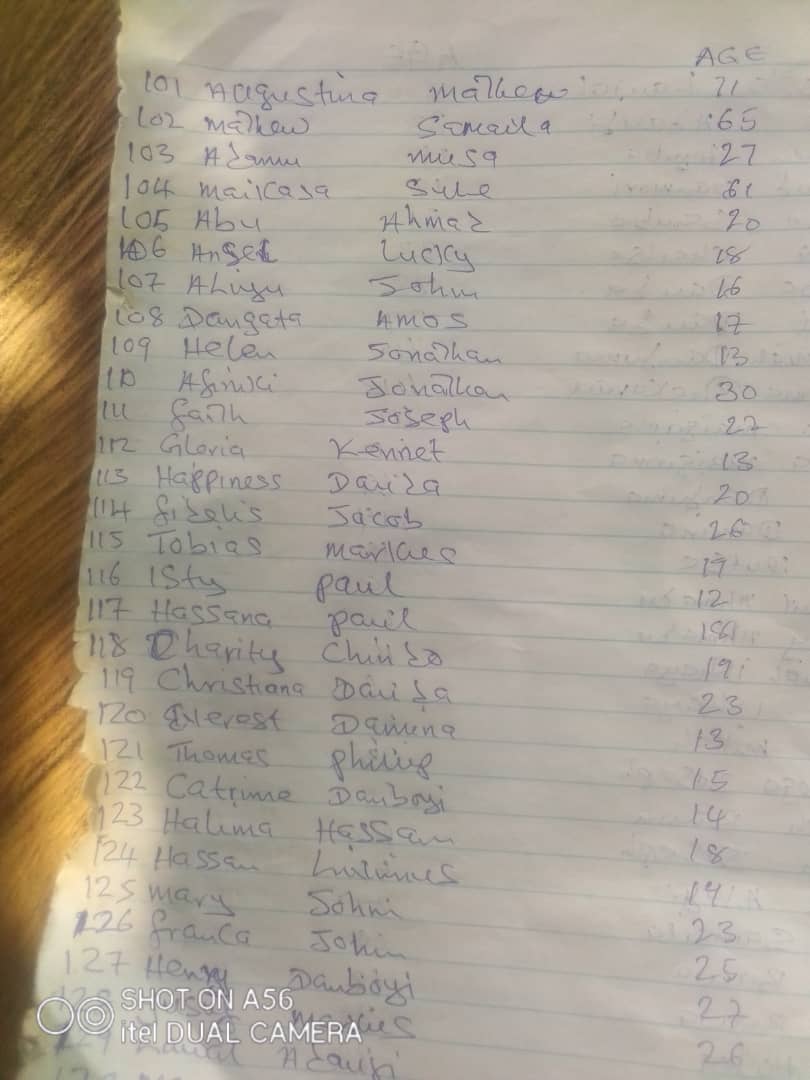 AGE
101 Augustina Mathew 71
102 Mathew Samaila 65
103 Adamu Musa 27
104 Maikasa Sule 61
105 Abu Ahmad 20
106 Angel Lucky 18
107 Aliyu John 16
108 Dangata Amos 17
109 Helen Jonathan 13
110 Afiniki Jonathan 30
111 Faith Joseph 22
112 Gloria Kennet 13
113 Happiness Dauda 20
114 Fidelis Jacob 26
115 Tobias 17
116 Isty Paul 12
117 Hassana Paul
118 Charity 19
119 Christiana Dauda 23
120 Everest Damina 13
121 Thomas Philip 15
122 Catrine Danboyi 14
123 Halima Hassan 18
124 Hassan 14
125 Mary John 23
126 Franca John 25
127 Henry Danboyi 27
26
SHOT ON A56
itel DUAL CAMERA